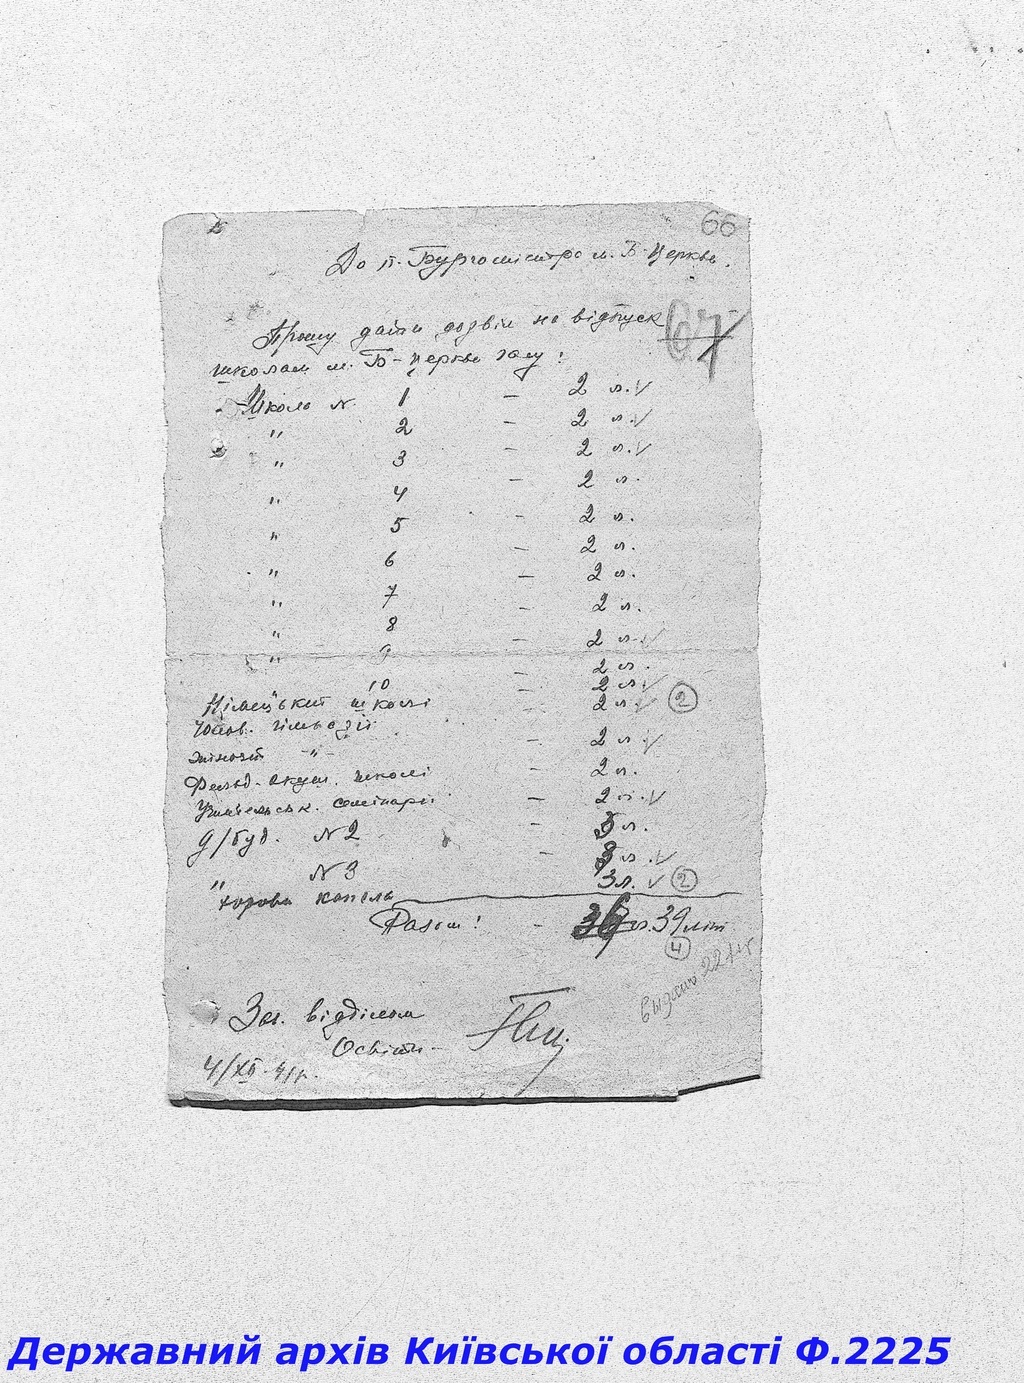 66
До п. Бургомістра м. Б-Церкви.
Прошу дати дозвіл на відпуск
67
школам м. Б-Церкви газу:
Школі N. 1 — 2 л.
" 2 — 2 л.
" 3 — 2 л.
" 4 — 2 л.
" 5 — 2 л.
" 6 — 2 л.
" 7 — 2 л.
" 8 — 2 л.
" 9 — 2 л.
" 10 — 2 л.
Німецькій школі — 2 л.
2 л. 2
жіночій -"- — 2 л.
Фельд-акуш. школі — 2 л.
Учительськ. семінарії — 2 л.
д/буд. N 2 — 3 л.
" N 3 — 3 л.
хорова капель 3 л. 2
Разом! — 39 літ
4
Зав. відділом
Освіти
4/XII-41 р.
Державний архів Київської області Ф.2225